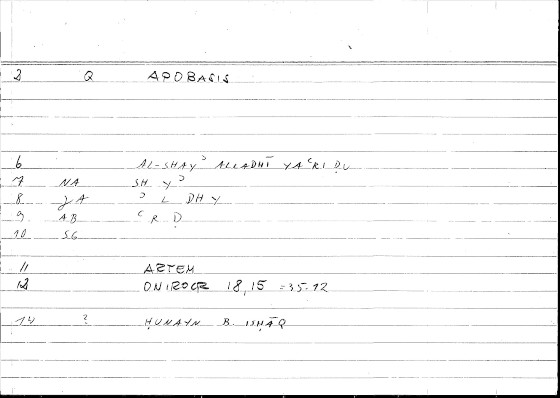 2 Q APOBASIS
6 AL-SHAYʾ ALLADHĪ YAʿRIḌU
7 NA SH Yʾ
8 JA ʾ L DH Y
9 AB ʿ R Ḍ
10 SG
11 ARTEM
12 ONIROCR 18,15 = 35.12
14 ? ḤUNAYN B. ISḤĀQ